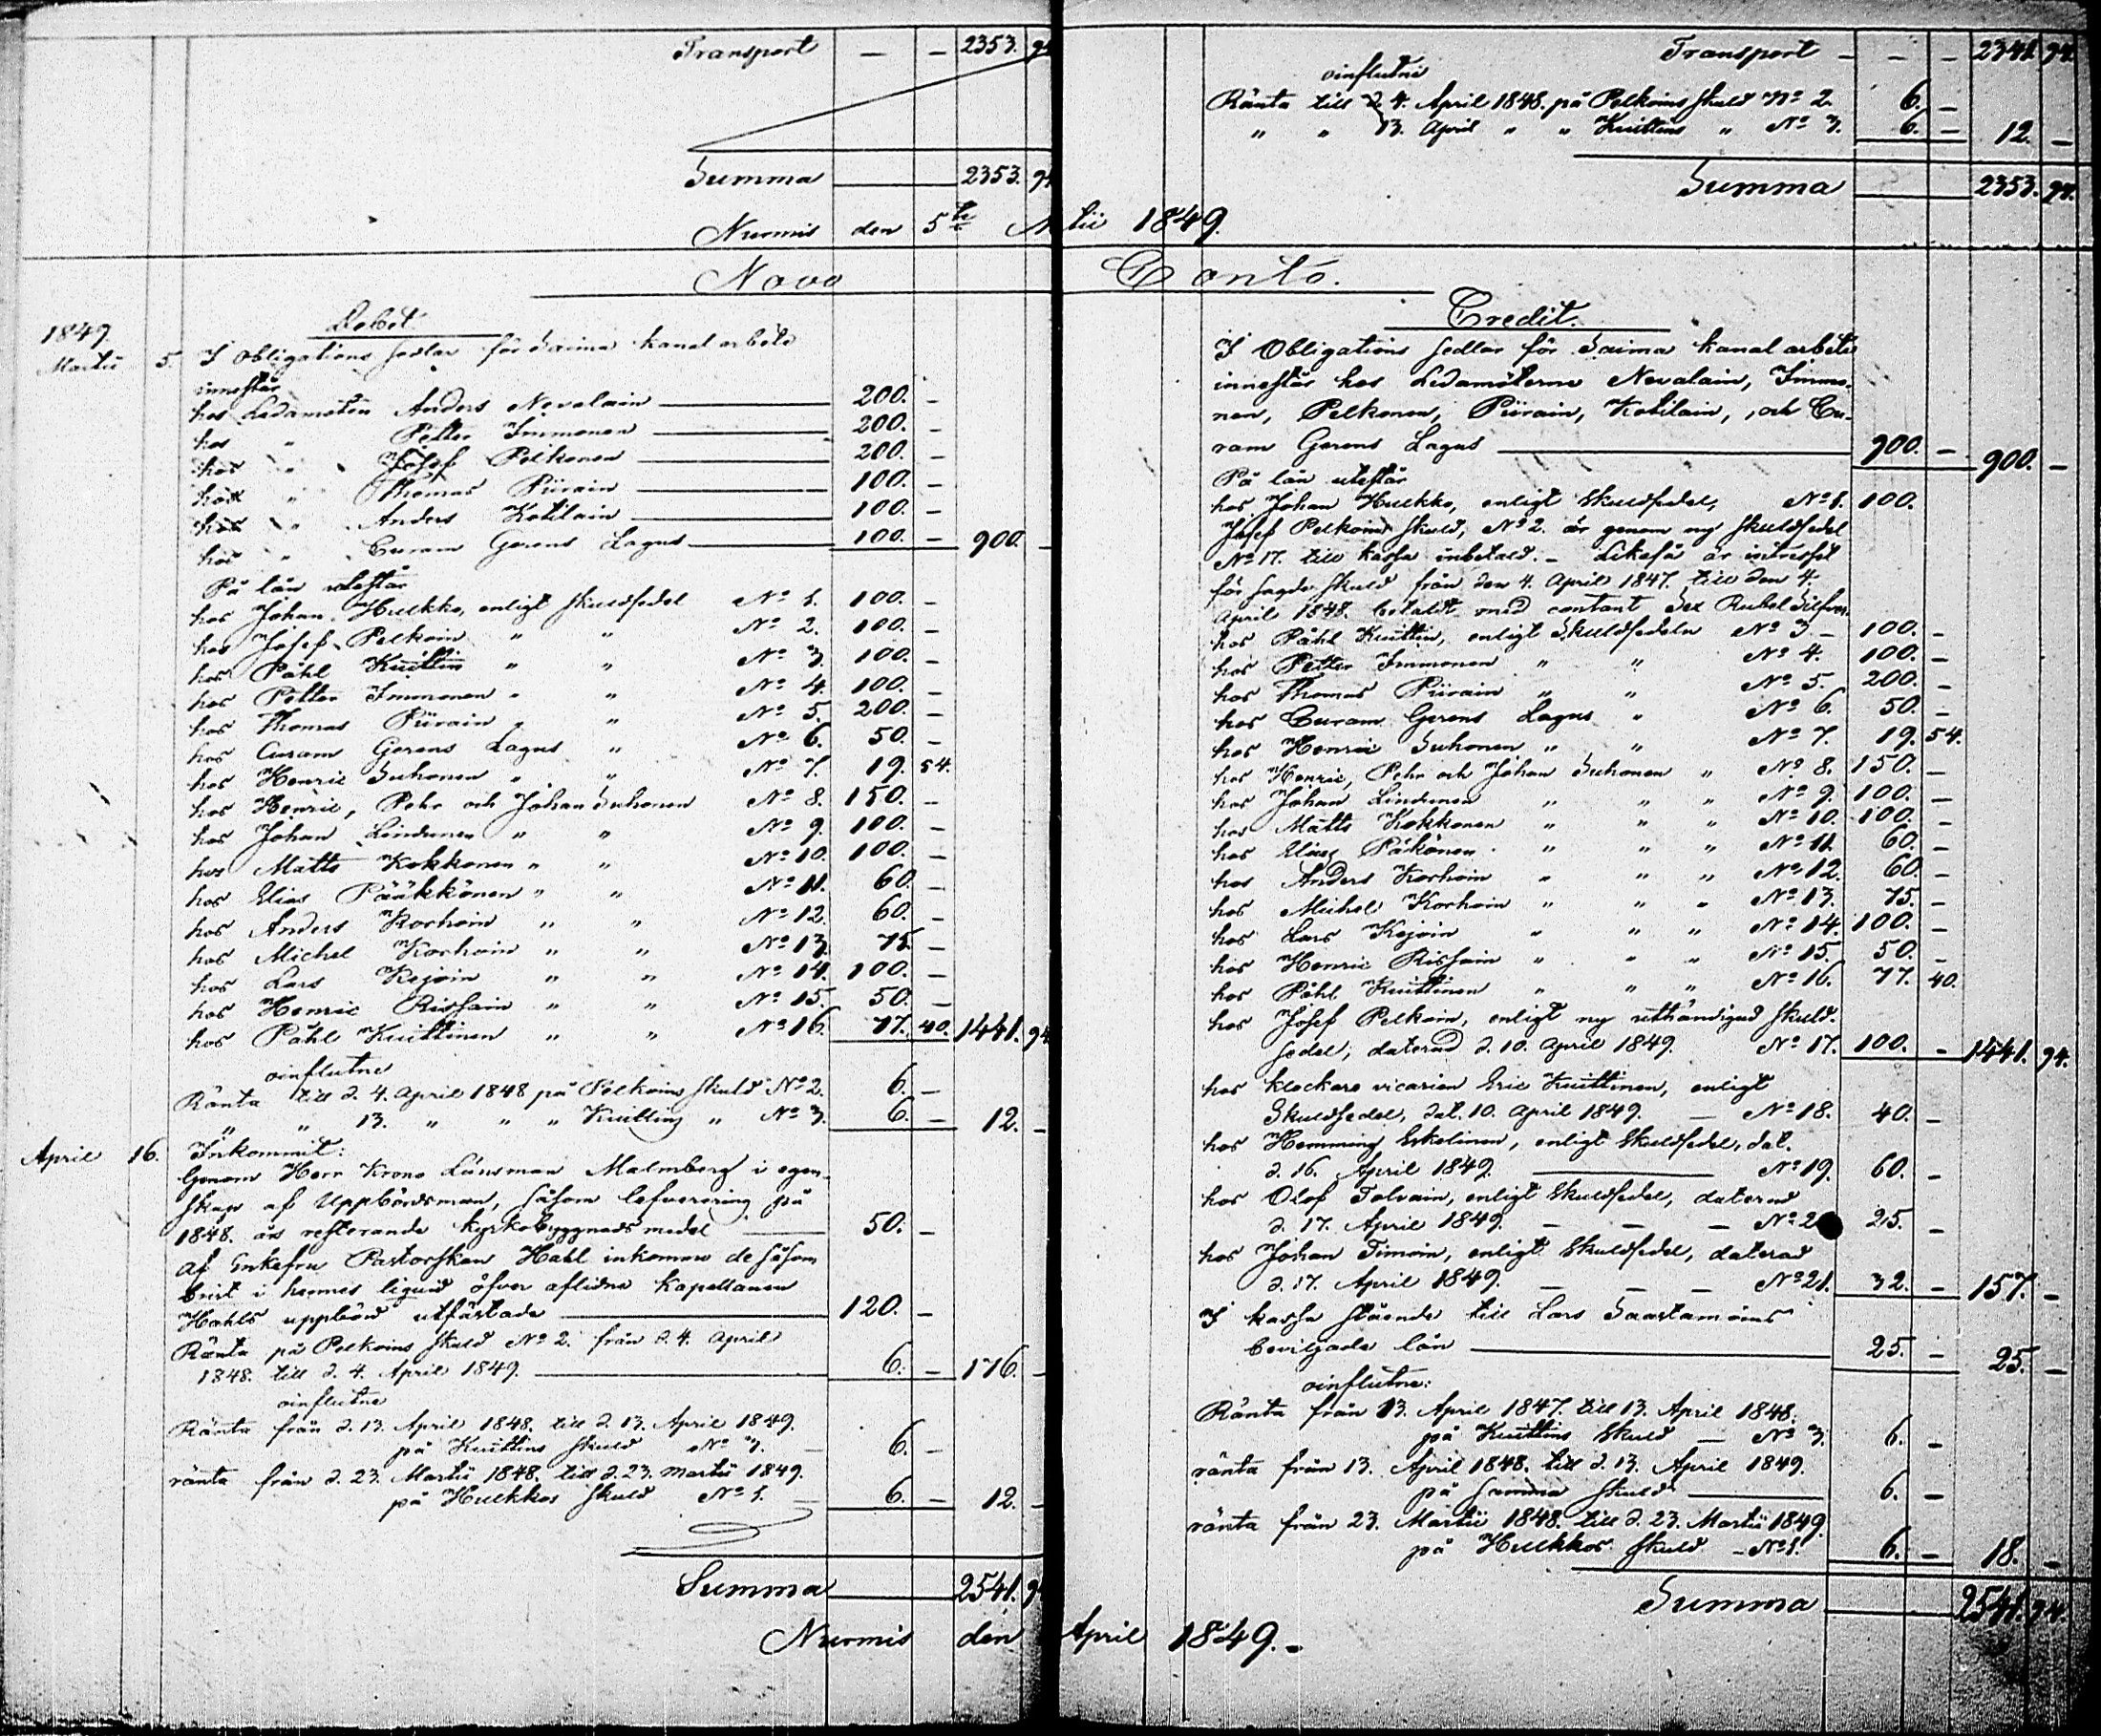 Transport — — 2353. 94
Summa 2353. 94
Nurmis den 5te
Novo
Debet
1849.
Martii 5. I Obligations sedlar för Saima kanal arbete
innestår
hos Ledamoten Anders Nevalain 200. —
hos " Petter Immonen 200. —
hos " Josef Pelkonen 200. —
hos " Thomas Piirain 100. —
hos " Anders Kotilain 100. —
hos " Curam Gerens Lagus 100. — 900. —
På lån utestår
hos Johan Hulkko, enligt skuldsedel No 1. 100. —
hos Josef Pelkoin " " No 2. 100. —
hos Påhl Kuittin " " No 3. 100. —
hos Petter Immonen " " No 4. 100. —
hos Thomas Piirain " " No 5. 200. —
hos Curam Gerens Lagus " No 6. 50. —
hos Henric Suhonen " " No 7. 19. 54.
hos Henric, Pehr och Johan Suhonen No 8. 150. —
hos Johan Lindunen " " No 9. 100. —
hos Matts Kokkonen " " No 10. 100. —
hos Elias Pääkkönen " " No 11. 60. —
hos Anders Korhoin " " No 12. 60. —
hos Michel Korhoin " " No 13. 75. —
hos Lars Kejoin " " No 14. 100. —
hos Henric Rissain " " No 15. 50. —
hos Påhl Kuittinen " " No 16. 77. 40. 1441. 94
oinflutne
Ränta till d. 4. April 1848 på Pelkoins skuld No 2. 6. —
" " 13. " " " Kuittins " No 3. 6. — 12. —
April 16. Inkommit:
Genom Herr Krono Länsman Malmberg i egen-
skap af Uppbördsman, såsom lefverering på
1848. års resterande kyrkobyggnads medel 50. —
Af Enkefru Pastorskan Hahl inkomne de såsom
brist i hennes liquid öfver aflidne Kapellanen
Hahls uppbörd utfästade 120. —
Ränta på Pelkoins skuld No 2. från d. 4. April
1848. till d. 4. April 1849. 6. — 176. —
oinflutne
Ränta från d. 13. April 1848. till d. 13. April 1849.
på Kuittins skuld No 3. — 6. —
ränta från d. 23. Martii 1848. till d. 23. Martii 1849.
på Hulkkos skuld No 1. — 6. — 12. —
Summa 2541. 94
Nurmis den
Transport — — — 2341. 94.
oinflutne
Ränta till d. 4. April 1848. på Pelkoins skuld No 2. 6. —
" " 13. April " " Kuittins " No 3. 6. — 12. —
Summa 2353. 94.
Mtii 1849.
Conto.
Credit.
I Obligations sedlar för Saima kanal arbete
innestår hos Ledamöterne Nevalain, Immo-
nen, Pelkonen, Piirain, Kotilain, och Cu-
ram Gerens Lagus 900. — 900. —
På lån utestår
hos Johan Hulkko, enligt skuldsedel, No 1. 100.
Josef Pelkoins skuld, No 2. är genom ny skuldsedel
No 17. till kassa inbetald. — Likaså är intresset
för sagde skuld från den 4. April 1847. till den 4.
April 1848. betaldt med contant Sex Rubel Silfver.
hos Påhl Kuittin, enligt Skuldsedeln No 3 — 100. —
hos Petter Immonen " " No 4. 100. —
hos Thomas Piirain " " No 5. 200. —
hos Curam Gerens Lagus " No 6. 50. —
hos Henric Suhonen " " No 7. 19. 54.
hos Henric, Pehr och Johan Suhonen " No 8. 150. —
hos Johan Lindunen " " " No 9. 100. —
hos Matts Kokkonen " " " No 10. 100. —
hos Elias Päkönen " " " No 11. 60. —
hos Anders Korhoin " " " No 12. 60. —
hos Michel Korhoin " " " No 13. 75. —
hos Lars Kejoin " " " No 14. 100. —
hos Henric Rissain " " " No 15. 50. —
hos Påhl Kuittinen " " " No 16. 77. 40.
hos Josef Pelkoin, enligt ny uthändigad skuld-
sedel, daterad d. 10. April 1849. No 17. 100. — 1441. 94.
hos klockare vicarien Eric Kuittinen, enligt
Skuldsedel, dat. 10. April 1849. — No 18. 40. —
hos Hemming Eskelinen, enligt Skuldsedel, dat.
d. 16. April 1849. No 19. 60. —
hos Olof Tolvain, enligt Skuldsedel, daterad
d. 17. April 1849. — — — No 2 25. —
hos Johan Timoin, enligt Skuldsedel, daterad
d. 17. April 1849. — — — No 21. 32. — 157. —
I kassa stående till Lars Saastamoins
bevilgade lån 25. — 25. —
oinflutne:
Ränta från 13. April 1847. till 13. April 1848.
på Kuittins Skuld — No 3. 6. —
ränta från 13. April 1848. till d. 13. April 1849.
på samma skuld 6. —
ränta från 23. Martii 1848. till d. 23. Martii 1849.
på Hulkkos skuld — No 1. 6. — 18. —
Summa 2541. 94
April 1849. —